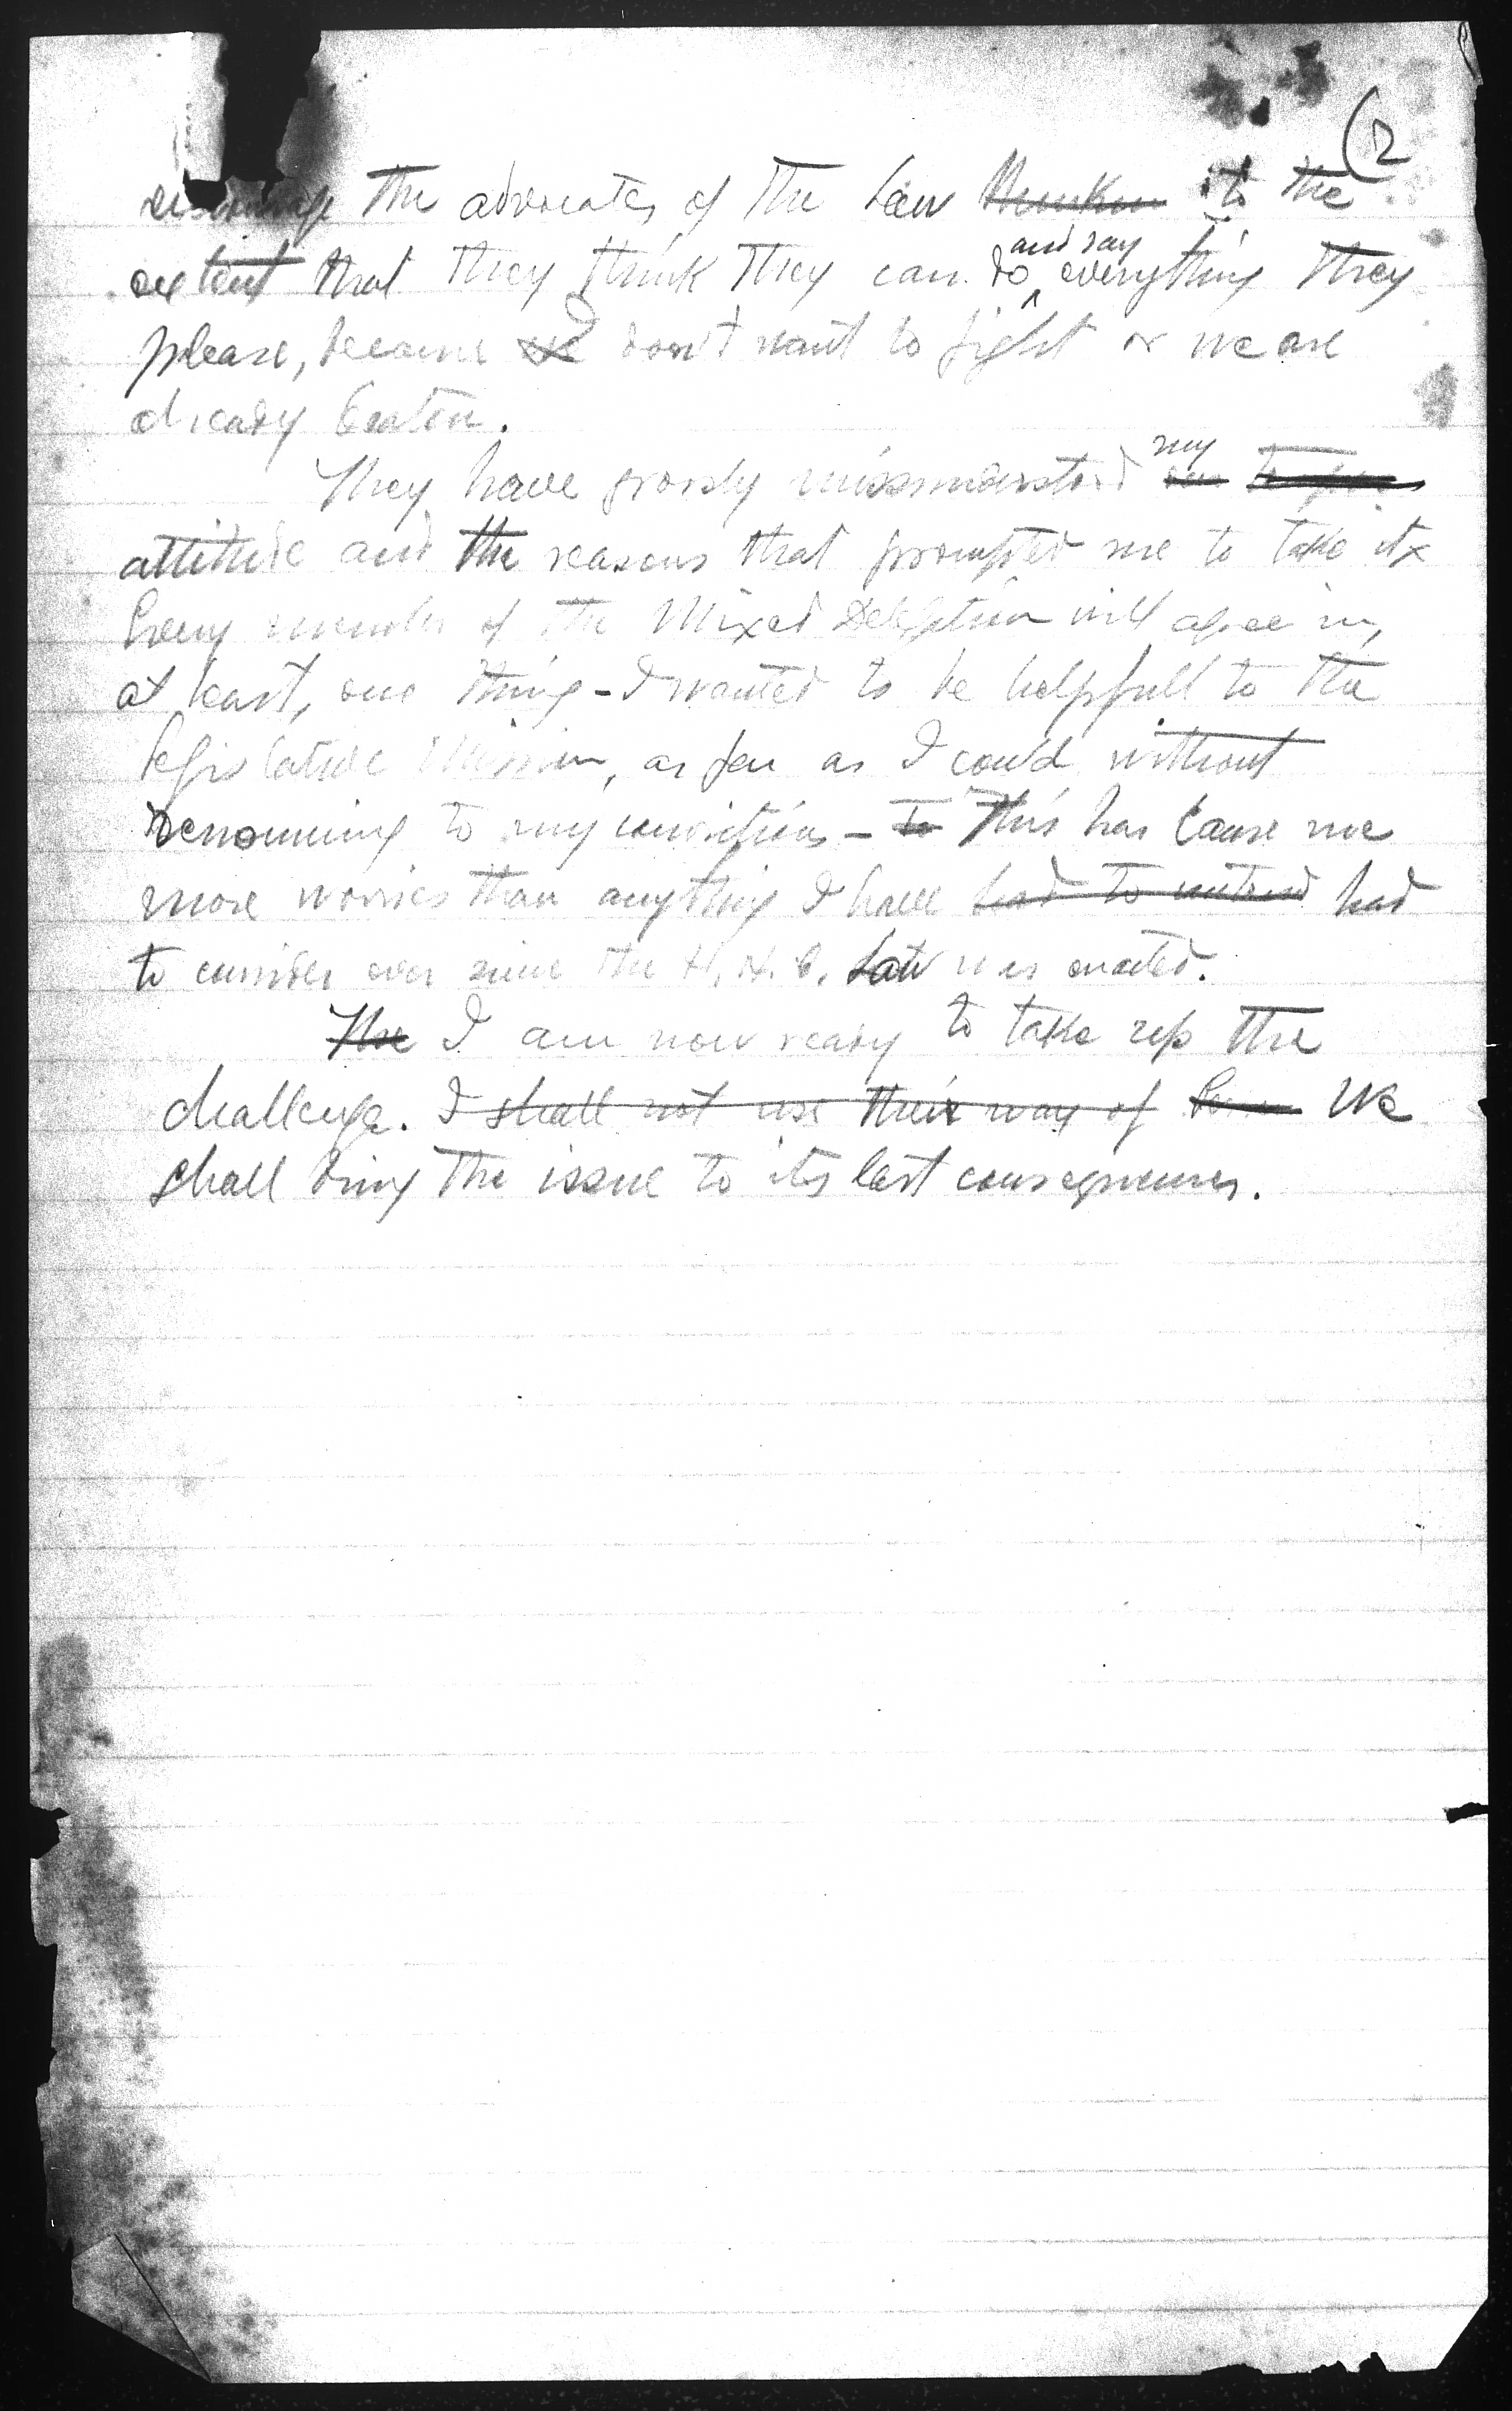 (2
the advocates of the law to the
extent that they think they can do and say everything they
please, because don't want to fight or we are
already beaten.
They have grossly missunderstood my
attitude and the reasons that prompted me to take it.
Every member of the Mixed Delegation will agree in,
at least, one thing - I wanted to be helpfull to the
Legislative Mission, as far as I could without
renouncing to my convictions - to This has cause me
more worries than anything I have had to had
to consider ever since the H. H. C. Law was enacted.
The I am now ready to take up the
challenge. I shall not use their way of We
shall bring the issue to its last consequences.